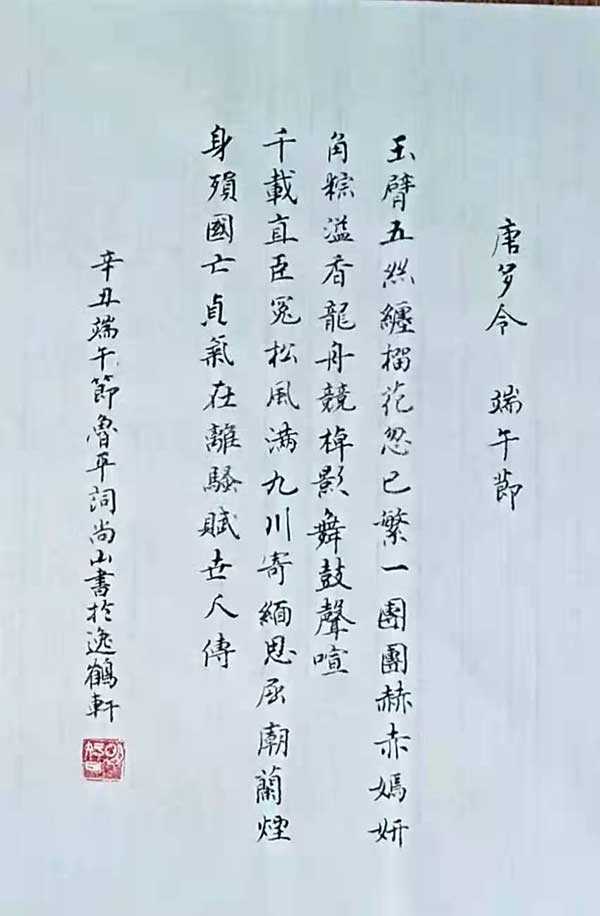 唐多令 端午節
玉臂五絲纏榴花忽已繁一團團赫赤嫣妍
角粽溢香龍舟競棹影舞鼓聲喧
千載直臣冤松風满九川寄緬思屈廟蘭煙
身殞國亡貞氣在離騷賦世人傳
辛丑端午節魯平詞尚山書於逸鶴軒